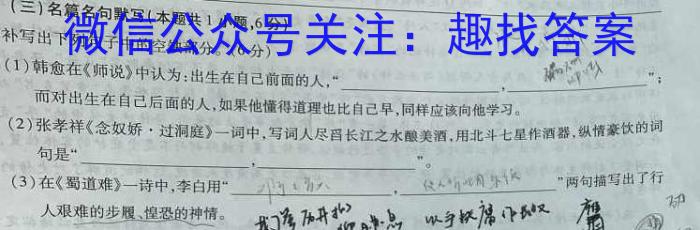 (三)名篇名句默写(本题共1小题,6分)
微信公众号关注：趣找答案
补写出下列句子中的空缺部分。(6分)
(1)韩愈在《师说》中认为:出生在自己前面的人,“____,____”;
而对出生在自己后面的人,如果他懂得道理也比自己早,同样应该向他学习。
(2)张孝祥《念奴娇·过洞庭》一词中,写词人尽舀长江之水酿美酒,用北斗七星作酒器,纵情豪饮的词
句是“____,____”。
(3)在《蜀道难》一诗中,李白用“____,____”两句描写出了行
人艰难的步履、惶恐的神情。
以手抚膺